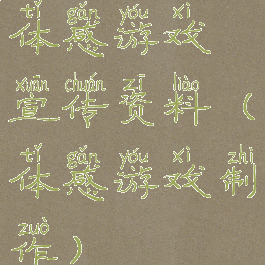 tǐ gǎn yóu xì
体感游戏
xuān chuán zī liào
宣传资料（
tǐ gǎn yóu xì zhì
体感游戏制
zuò
作）